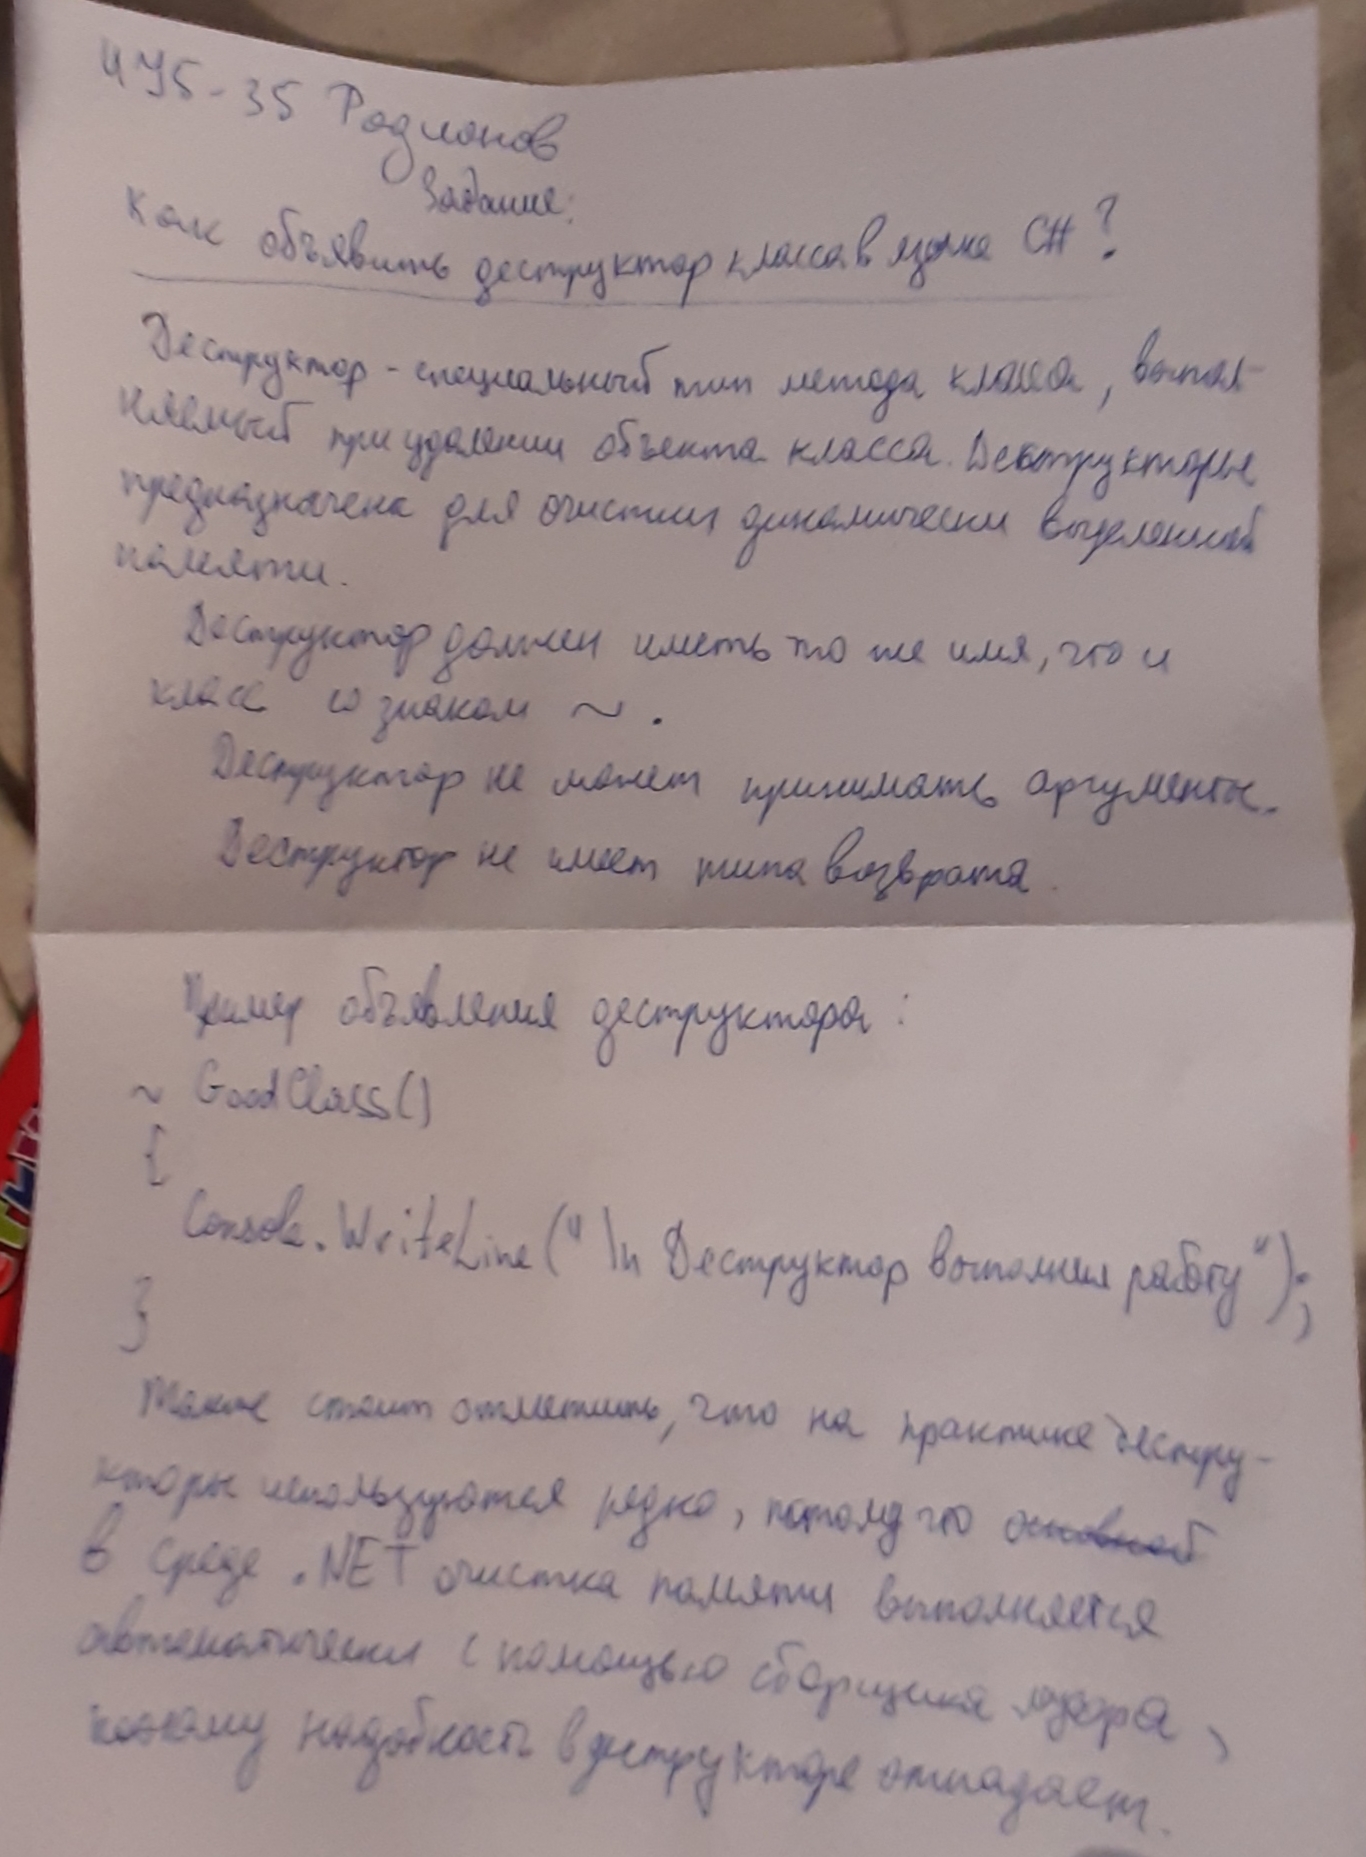 ИУ5-35 Родионов
Задание:
Как объявить деструктор класса в языке C#?
Деструктор - специальный тип метода класса, выпол-
няемый при удалении объекта класса. Деструкторы
предназначены для очистки динамически выделенной
памяти.
Деструктор должен иметь то же имя, что и
класс со знаком ~.
Деструктор не может принимать аргументы.
Деструктор не имеет типа возврата.
Пример объявления деструктора:
~ GoodClass()
{
Console.WriteLine("\n Деструктор выполнил работу");
}
Также стоит отметить, что на практике дестру-
кторы используются редко, потому что основной
в среде .NET очистка памяти выполняется
автоматически с помощью сборщика мусора,
поэтому надобность в деструкторе отпадает.